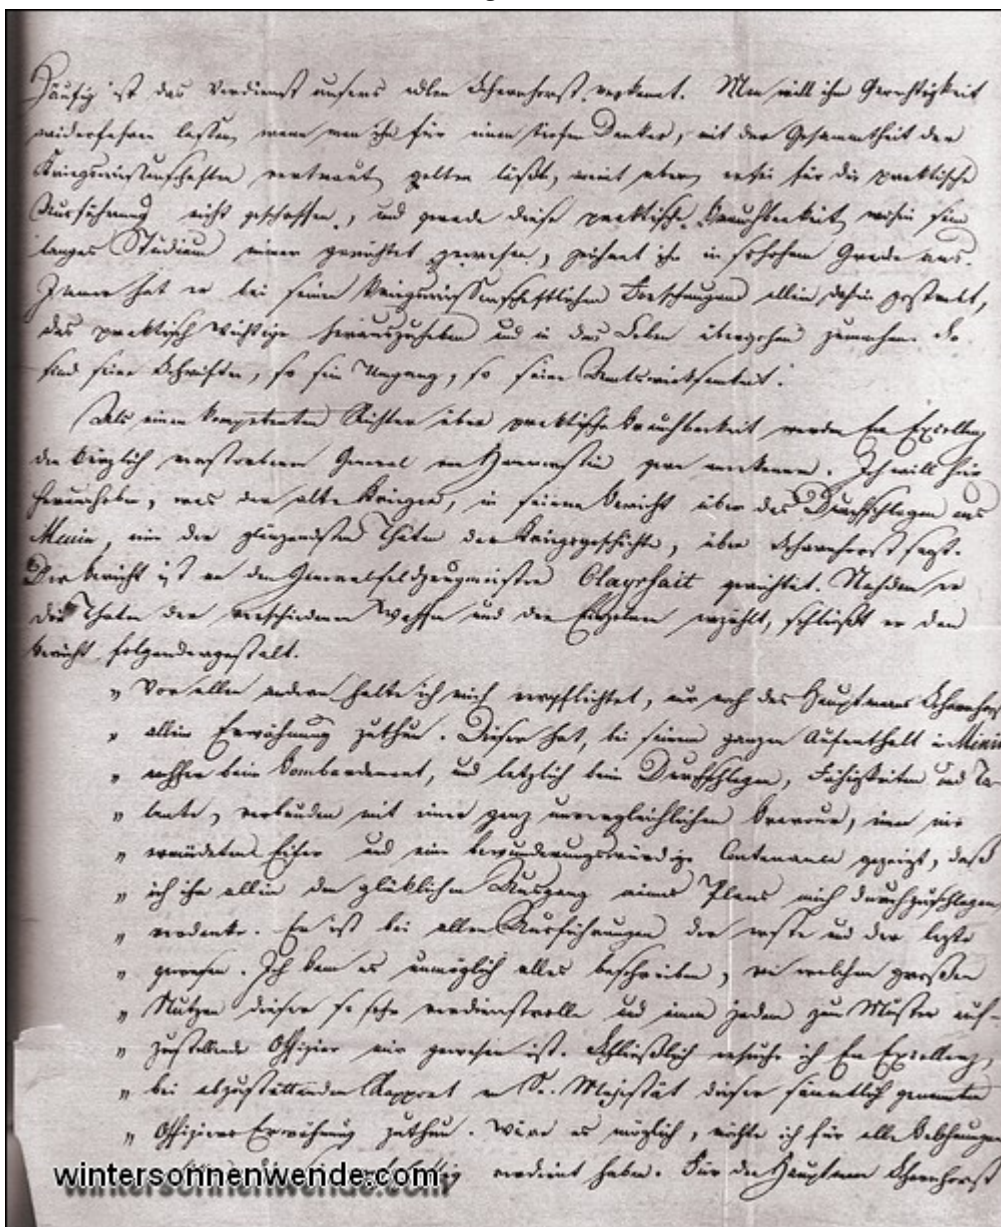 Häufig ist das Verdienst unsers edlen Scharnhorst verkannt. Man will ihm Gerechtigkeit
widerfahren lassen, wenn man ihn für einen tiefen Denker, mit der Gesammtheit der
Kriegswissenschaften vertraut, gelten läßt, meint aber, er sei für die praktische
Ausführung nicht geschaffen, und gerade diese praktische Brauchbarkeit, wohin sein
langes Studium immer gerichtet gewesen, zeichnet ihn in so hohem Grade aus.
Immer hat er bei seinen kriegswissenschaftlichen Forschungen allein dahin gestrebt,
das praktisch Wichtige herauszuheben und in das Leben übergehen zumachen. So
sind seine Schriften, so sein Umgang, so seine Amtswirksamkeit.
Als einen kompetenten Richter über praktische Brauchbarkeit werden Ew Excellenz
den kürzlich verstorbenen General von Hammerstein gern anerkennen. Ich will hier
herausheben, was der alte Krieger, in seinem Bericht über das Durchschlagen aus
Menin, eine der glänzendsten Thaten der Kriegsgeschichte, über Scharnhorst sagt.
Der Bericht ist an den Generalfeldzeugmeister Clayrfait gerichtet. Nachdem er
die Thaten der verschiedenen Waffen und der Einzelnen erzählt, schließt er den
Bericht folgendergestalt.
„ Vor allen andern halte ich mich verpflichtet, nur noch des Hauptmanns Scharnhorst
„ allein Erwähnung zuthun. Dieser hat, bei seinem ganzen Aufenthalt in Menin
„ nachher beim Bombardement, und letzlich beim Durchschlagen, Fähigkeiten und Ta-
„ lente, verbunden mit einer ganz unvergleichlichen Bravour, einen nie
„ ermüdeten Eifer und eine bewunderungswürdige Contenance gezeigt, daß
„ ich ihm allein den glüklichen Ausgang meines Plans mich durchzuschlagen,
„ verdanke. Er ist bei allen Ausführungen der erste und der lezte
„ gewesen. Ich kann es unmöglich alles beschreiben, von welchem großen
„ Nutzen dieser so sehr verdienstvolle und einem jeden zum Muster auf-
„ zustellende Offizier mir gewesen ist. Schließlich ersuche ich Ew Excellenz,
„ bei abzustattenden Rapport an Sr. Majestät dieser sämmtlich genannten
„ Offiziere Erwähnung zuthun. Wäre es möglich, möchte ich für alle Belohnungen
verdient haben. Für den Hauptmann Scharnhorst
wintersonnenwende.com